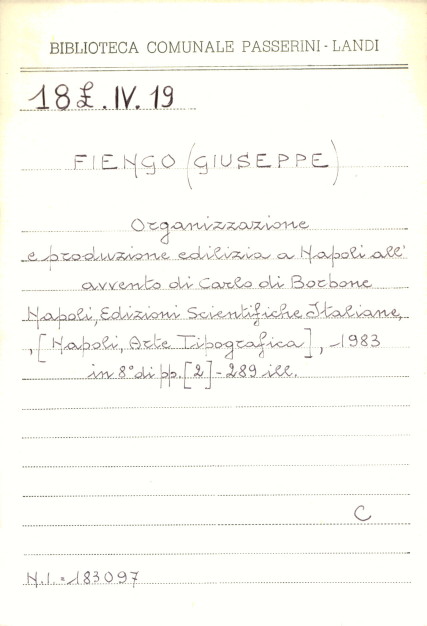 BIBLIOTECA COMUNALE PASSERINI - LANDI
18 £. IV. 19
FIENGO (GIUSEPPE)
Organizzazione
e produzione edilizia a Napoli all'
avvento di Carlo di Borbone
Napoli, Edizioni Scientifiche Italiane,
, [Napoli, Arte Tipografica], 1983
in 8° di pp. [2] - 289 ill.
C
N.I. = 183097